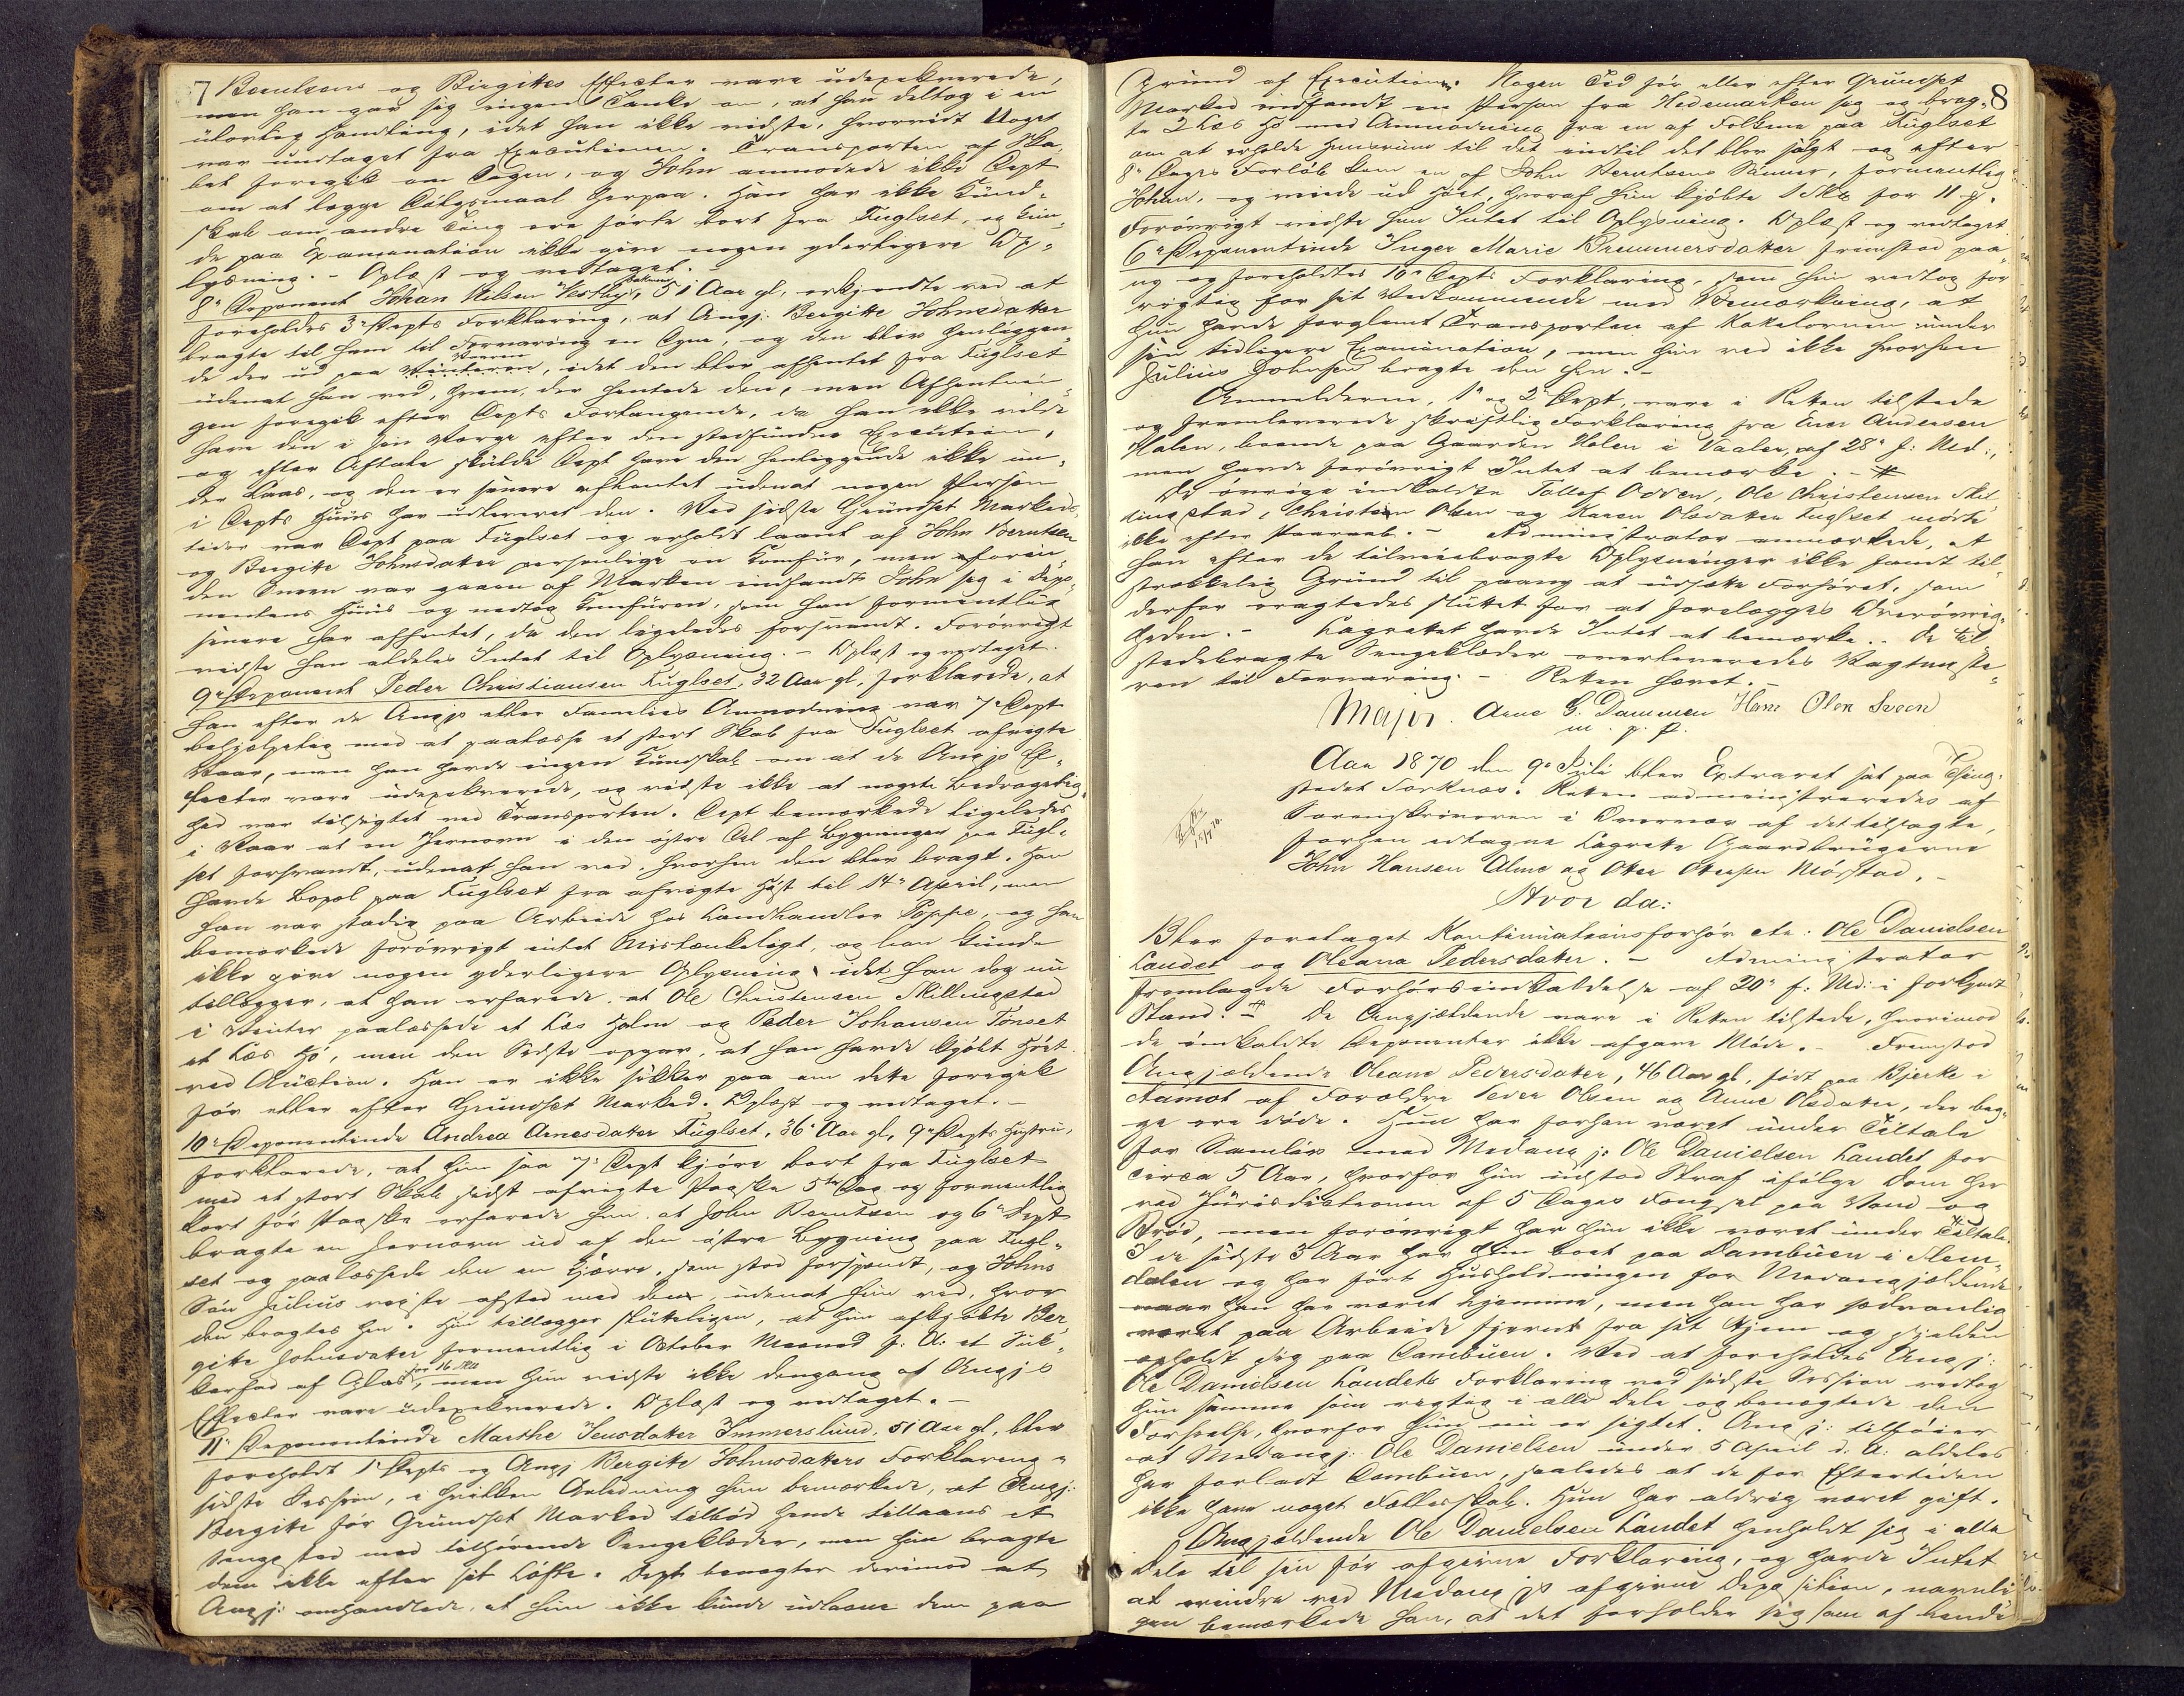 7 Berntsens og Birgittes Effecter vare udexekverede,
men han gav sig ingen Tanke om, at han deltog i en
ulovlig Handling, idet han ikke vidste, hvorvidt Noget
var undtaget fra Executionen. Transporten af Ska-
bet foregik om Dagen, og John anmodede ikke Dept
om at lægge Dølgsmaal herpaa. Han har ikke Kund-
skab om andre Ting ere førte bort fra Fuglset, og kun-
de paa Examination ikke give nogen yderligere Op-
lysning. - Oplæst og vedtaget. -
8de Deponent Johan Nilsen Vestby, 51 Aar gl, erkjendte ved at
foreholdes 3die Depts Forklaring, at Angj: Bergitte Johnsdatter
bragte til ham til Forvaring en Dyne, og den blev henliggen-
de der ud paa Vaaren, idet den blev afhentet fra Fuglset
udenat han ved, hvem, der hentede den, men Afhentnin-
gen foregik efter Depts Forlangende, da han ikke vilde
have den i sin Værge efter den stedfundne Execution,
og efter Aftale skulde Dept have den henliggende ikke un-
der Laas, og den er senere afhentet udenat nogen Person
i Depts Huus har udleveret den. Ved sidste Grundset Markeds-
tider var Dept paa Fuglset og erholdt laant af John Berntsen
og Bergitte Johnsdatter personlige en Komfur, men forin-
den Sneen var gaaen af Marken indfandt John sig i Depo-
nentens Huus og nedtog Komfuren, som han formentlig
senere har afhentet, da den ligeledes forsvandt. Forøvrigt
vidste han aldeles Intet til Oplysning. - Oplæst og vedtaget.
9de Deponent Peder Christiansen Fuglset, 32 Aar gl, forklarede, at
han efter de Angjs eller Families Anmodning var 7de Dept
behjælpelig med at paalæsse et stort Skab fra Fuglset afvigte
Vaar, men han havde ingen Kundskab om at de Angjs Ef-
fecter vare udexekverede, og vidste ikke at nogen Bedragelig-
hed var tilsigtet ved Transporten. Dept bemærkede ligeledes
i Vaar at en Jernovn i den østre Del af Bygningen paa Fugl-
set forsvandt, udenat han ved, hvorhen den blev bragt. Han
havde Bopæl paa Fuglset fra afvigte Høst til 14de April, men
han var stadig paa Arbeide hos Landhandler Poppe, og han
bemærkede forøvrigt intet Mistænkeligt, og han kunde
ikke give nogen yderligere Oplysning, idet han dog nu
tillægger, at han erfarede, at Ole Christensen Skillingstad
i Vinter paalæssede et Læs Halm og Peder Johansen Tønset
et Læs Hø, men den Sidste opgav, at han havde kjøbt Høet
ved Auction. Han er ikke sikker paa om dette foregik
før eller efter Grundset Marked. Oplæst og vedtaget. -
10de Deponentinde Andrea Arnesdatter Fuglset, 36 Aar gl, 9de Depts Hustru,
forklarede, at hun saa 7de Dept kjøre bort fra Fuglset
med et stort Skab sidst afvigte Paaske 5te Dag og formentlig
kort før Paaske erfarede hun, at John Berntsen og 6te Dept
bragte en Jernovn ud af den østre Bygning paa Fugl-
set og paalæssede den en Kjærre, som stod forspændt, og Johns
Søn Julius reiste afsted med den, udenat hun ved, hvor
den bragtes hen. Hun tillægger sluttelig, at hun afkjøbte Ber-
gitte Johnsdatter formentlig i October Maaned f. A: et Suk-
kerfad af Glas for 16 Sk, men hun vidste ikke dengang at Angjs
Effecter vare udexekverede. Oplæst og vedtaget. -
11te Deponentinde Marthe Jensdatter Immerslund, 51 Aar gl, blev
foreholdt 1ste Depts og Angj Bergitte Johnsdatters Forklaring i
sidste Session, i hvilken Anledning hun bemærkede, at Angj:
Bergitte før Grundset Marked tilbød hende tillaans et
Sengested med tilhørende Sengeklæder, men hun bragte
dem ikke efter sit Løfte. Dept benægter derimod at
Angj: omhandlede, at hun ikke kunde udlaane dem paa
8
Grund af Executionen. Nogen Tid før eller efter Grundset
Marked indfandt en Person fra Hedemarken sig og brag-
te 2 Læs Hø med Anmodning fra en af Folkene paa Fuglset
om at erholde Huusrum til det indtil det blev solgt og efter
8te Dages Forløb kom en af John Berntsens Sønner, formentlig
Johan, og veiede ud Høet, hvoraf hun kjøbte 1 Sk for 11 s.
Forøvrigt vidste hun Intet til Oplysning. Oplæst og vedtaget.
6te Deponentinde Inger Marie Bremmersdatter fremstod paa
ny og foreholdtes 10de Depts Forklaring, som hun vedtog for
rigtig for sit Vedkommende med Bemærkning, at
hun havde forglemt Transporten af Kakelovnen under
sin tidligere Examination, men hun ved ikke hvorhen
Julius Johnsen bragte den hen. -
Anmelderne, 1ste og 2den Dept, vare i Retten tilstede
og fremleverede skriftlig Forklaring fra Even Andersen
Holen, boende paa Gaarden Holen i Vaaler, af 28de f: Md:,
men havde forøvrigt Intet at bemærke. -
De øvrige indkaldte Tollef Odden, Ole Christensen Skil-
lingstad, Christen Olsen og Karen Olsdatter Fuglset mødte
ikke efter Paaraab. - Administrator anmærkede, at
han efter de tilveiebragte Oplysninger ikke fandt til-
strækkelig Grund til paany at udsætte Forhøret, som
derfor eragtedes sluttet for at forelægges Overøvrig-
heden. - Lagrettet havde Intet at bemærke. - De til-
stedebragte Sengeklæder overleveredes Vagtmeste-
ren til Forvaring. - Retten hævet. -
Major. Arne G. Dammen Hans Olsen Sveen
m. p. P.
Aar 1870 den 9de Juli blev Extraret sat paa Thing-
stedet Forknæs. Retten administreredes af
Sorenskriveren i Overvær af det tilsagte,
forhen edtagne Lagrette Gaardbrugerne
John Hansen Alme og Oker Okersen Mørstad. -
Hvor da:
Blev foretaget Kontinuationsforhør ctr: Ole Danielsen
Landet og Oleana Pedersdatter. - Administrator
fremlagde Forhørsindkaldelse af 20de f: Md: i forkyndt
Stand. De Angjældende vare i Retten tilstede, hvorimod
de indkaldte Deponenter ikke afgave Møde. - Fremstod
Angjældende Oleane Pedersdatter, 46 Aar gl, født paa Bjerke i
Aamot af Forældre Peder Olsen og Anne Olsdatter, der beg-
ge ere døde. Hun har forhen været under Tiltale
for Samleie med Medangj: Ole Danielsen Landet for
circa 5 Aar, hvorfor hun udstod Straf ifølge Dom her
ved Jurisdictionen af 5 Dages Fængsel paa Vand og
Brød, men forøvrigt har hun ikke været under Tiltale.
I de sidste 3 Aar har hun boet paa Dambuen i Slem-
dalen og har ført Husholdningen for Medangjældende
naar han har været hjemme, men han har sædvanlig
været paa Arbeide fjernt fra sit Hjem og sjelden
opholdt sig paa Dambuen. Ved at foreholdes Angj:
Ole Danielsen Landets Forklaring ved sidste Session vedtog
hun samme som rigtig i alle Dele og benægtede den
Forseelse, hvorfor hun nu er sigtet. Angj: tilføier
at Medangj: Ole Danielsen under 5 April d. A: aldeles
har forladt Dambuen, saaledes at de for Eftertiden
ikke have noget Fællesskab. Hun har aldrig været gift.
Angjældende Ole Danielsen Landet henholdt sig i alle
Dele til sin før afgivne Forklaring, og havde Intet
at erindre ved Medangjs afgivne Deposition, navnli-
gen bemærkede han, at det forholder sig som af hende